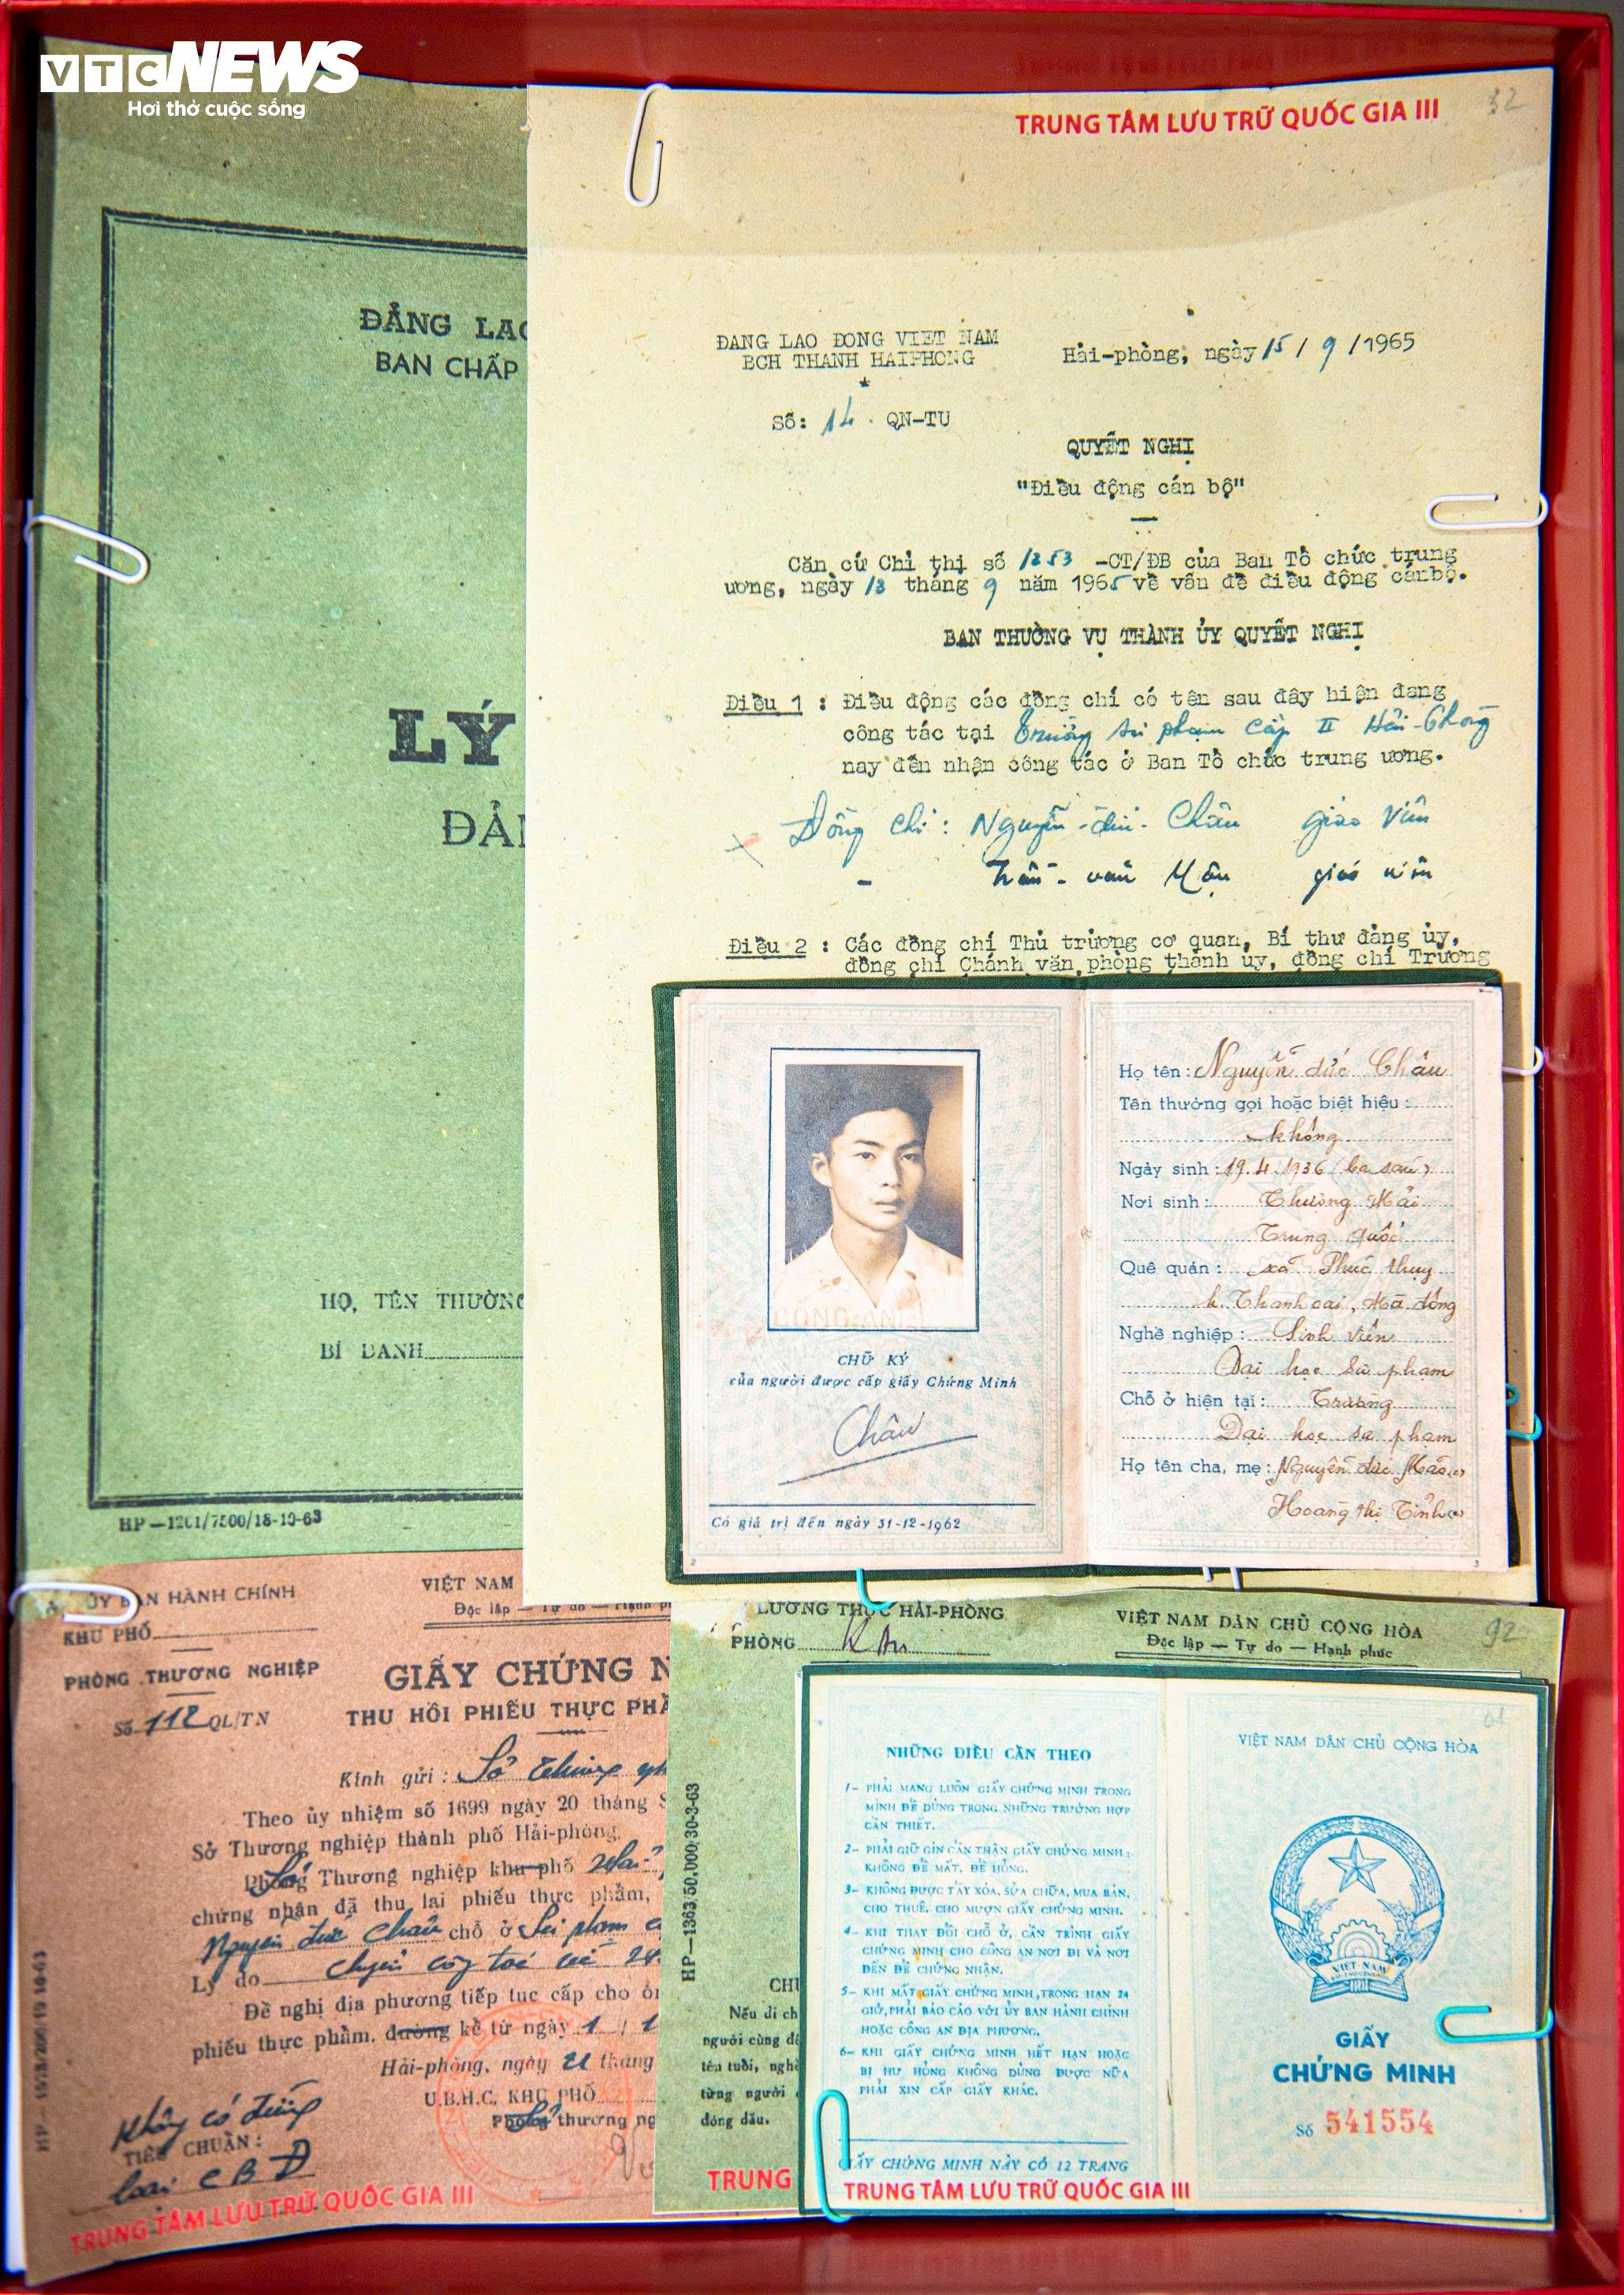 VTC NEWS
Hơi thở cuộc sống
TRUNG TÂM LƯU TRỮ QUỐC GIA III
32
ĐẢNG LAO
BAN CHẤP
LÝ
ĐẢ
HỌ, TÊN THƯỜNG
BÍ DANH
HP—1201/7500/18-10-63
ĐANG LAO DONG VIET NAM
BCH THANH HAIPHONG
Hải-phòng, ngày 15 / 9 /1965
Số: 14. QN-TU
QUYẾT NGHỊ
"Điều động cán bộ"
Căn cứ Chỉ thị số 1253 -CT/ĐB của Ban Tổ chức trung
ương, ngày 13 tháng 9 năm 1965 về vấn đề điều động cánbộ.
BAN THƯỜNG VỤ THÀNH ỦY QUYẾT NGHỊ
Điều 1 : Điều động các đồng chí có tên sau đây hiện đang
công tác tại Trường sư phạm cấp II Hải-Phòng
nay đến nhận công tác ở Ban Tổ chức trung ương.
Đồng chí: Nguyễn-đức-Châu giáo viên
- Trần-văn giáo viên
Điều 2 : Các đồng chí Thủ trưởng cơ quan, Bí thư đảng ủy,
đồng chí Chánh văn phòng thành ủy, đồng chí Trưởng
CÔNG AN
CHỮ KÝ
của người được cấp giấy Chứng Minh
Châu
Có giá trị đến ngày 31-12-1962
2
Họ tên: Nguyễn đức Châu
Tên thường gọi hoặc biệt hiệu:
không
Ngày sinh: 19.4.1936 (ba sáu)
Nơi sinh: Thượng Hải
Trung quốc
Quê quán: xã Phúc thụy
h. Thanh oai, Hà đông
Nghề nghiệp: Sinh viên
Đại học Sư phạm
Chỗ ở hiện tại: Trường
Đại học sư phạm
Họ tên cha, mẹ: Nguyễn đức
Hoàng thị Tỉnh
3
ỦY BAN HÀNH CHÍNH
KHU PHỐ
PHÒNG THƯƠNG NGHIỆP
Số 112 QL/TN
VIỆT NAM
Độc lập — Tự do — Hạnh p
GIẤY CHỨNG N
THU HỒI PHIẾU THỰC PHẨ
Kính gửi: Sở thương ngh
Theo ủy nhiệm số 1699 ngày 20 tháng
Sở Thương nghiệp thành phố Hải-phòng,
Phòng Thương nghiệp khu phố
chứng nhận đã thu lại phiếu thực phẩm,
Nguyễn đức Châu chỗ ở Sư phạm c
Lý do chuyển công tác
Đề nghị địa phương tiếp tục cấp cho ôn
phiếu thực phẩm. đường kể từ ngày 1 / 1
Hải-phòng, ngày 21 tháng
U.B.H.C. KHU PHỐ
Phòng thương ng
Không có đường
TIÊU CHUẨN:
loại C B Đ
TRUNG TÂM LƯU TRỮ QUỐC GIA III
LƯƠNG THỰC HẢI-PHÒNG
PHÒNG
VIỆT NAM DÂN CHỦ CỘNG HÒA
Độc lập — Tự do — Hạnh phúc
92
HP—1363/50.000/30-3-63
CHỈ
Nếu di ch
người cùng đ
tên tuổi, ngh
từng người
đóng dấu.
TRUNG
NHỮNG ĐIỀU CẦN THEO
1- PHẢI MANG LUÔN GIẤY CHỨNG MINH TRONG
MÌNH ĐỂ DÙNG TRONG NHỮNG TRƯỜNG HỢP
CẦN THIẾT.
2- PHẢI GIỮ GÌN CẨN THẬN GIẤY CHỨNG MINH:
KHÔNG ĐỂ MẤT, ĐỂ HỎNG.
3- KHÔNG ĐƯỢC TẨY XÓA, SỬA CHỮA, MUA BÁN,
CHO THUÊ, CHO MƯỢN GIẤY CHỨNG MINH.
4- KHI THAY ĐỔI CHỖ Ở, CẦN TRÌNH GIẤY
CHỨNG MINH CHO CÔNG AN NƠI ĐI VÀ NƠI
ĐẾN ĐỂ CHỨNG NHẬN.
5- KHI MẤT GIẤY CHỨNG MINH, TRONG HẠN 24
GIỜ, PHẢI BÁO CÁO VỚI ỦY BAN HÀNH CHÍNH
HOẶC CÔNG AN ĐỊA PHƯƠNG.
6- KHI GIẤY CHỨNG MINH HẾT HẠN HOẶC
BỊ HƯ HỎNG KHÔNG DÙNG ĐƯỢC NỮA
PHẢI XIN CẤP GIẤY KHÁC.
GIẤY CHỨNG MINH NÀY CÓ 12 TRANG
TRUNG TÂM LƯU TRỮ QUỐC GIA III
VIỆT NAM DÂN CHỦ CỘNG HÒA
VIỆT-NAM
GIẤY
CHỨNG MINH
Số 541554